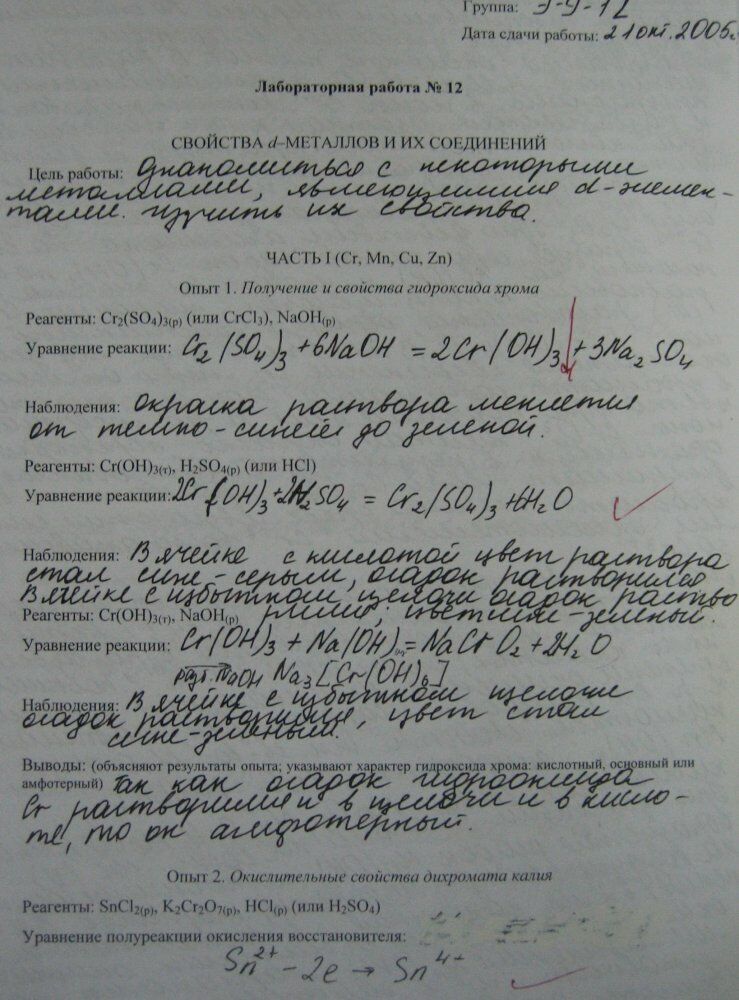 Группа: Э-9-12
Дата сдачи работы: 21 окт. 2005г.
Лабораторная работа № 12
СВОЙСТВА d–МЕТАЛЛОВ И ИХ СОЕДИНЕНИЙ
Цель работы: Ознакомиться с некоторыми
металлами, являющимися d-элемен-
тами. изучить их свойства.
ЧАСТЬ I (Cr, Mn, Cu, Zn)
Опыт 1. Получение и свойства гидроксида хрома
Реагенты: Cr₂(SO₄)₃(р) (или CrCl₃), NaOH(р)
Уравнение реакции: Cr₂(SO₄)₃ + 6NaOH = 2Cr(OH)₃↓ + 3Na₂SO₄
Наблюдения: окраска раствора меняется
от темно-синей до зеленой.
Реагенты: Cr(OH)₃(т), H₂SO₄(р) (или HCl)
Уравнение реакции: 2Cr(OH)₃ + 3H₂SO₄ = Cr₂(SO₄)₃ + 6H₂O
Наблюдения: В ячейке с кислотой цвет раствора
стал сине-серым, осадок растворился
В ячейке с избытком щелочи осадок раство
рился, цвет сине-зеленый.
Реагенты: Cr(OH)₃(т), NaOH(р)
Уравнение реакции: Cr(OH)₃ + Na(OH) = NaCrO₂ + 2H₂O
NaOH Na₃[Cr(OH)₆]
Наблюдения: В ячейке с избытком щелочи
осадок растворился, цвет стал
сине-зеленый.
Выводы: (объясняют результаты опыта; указывают характер гидроксида хрома: кислотный, основный или
амфотерный) Так как осадок гидрооксида
Cr растворился и в щелочи и в кисло-
те, то он амфотерный.
Опыт 2. Окислительные свойства дихромата калия
Реагенты: SnCl₂(р), K₂Cr₂O₇(р), HCl(р) (или H₂SO₄)
Уравнение полуреакции окисления восстановителя:
Sn²⁺ – 2e → Sn⁴⁺